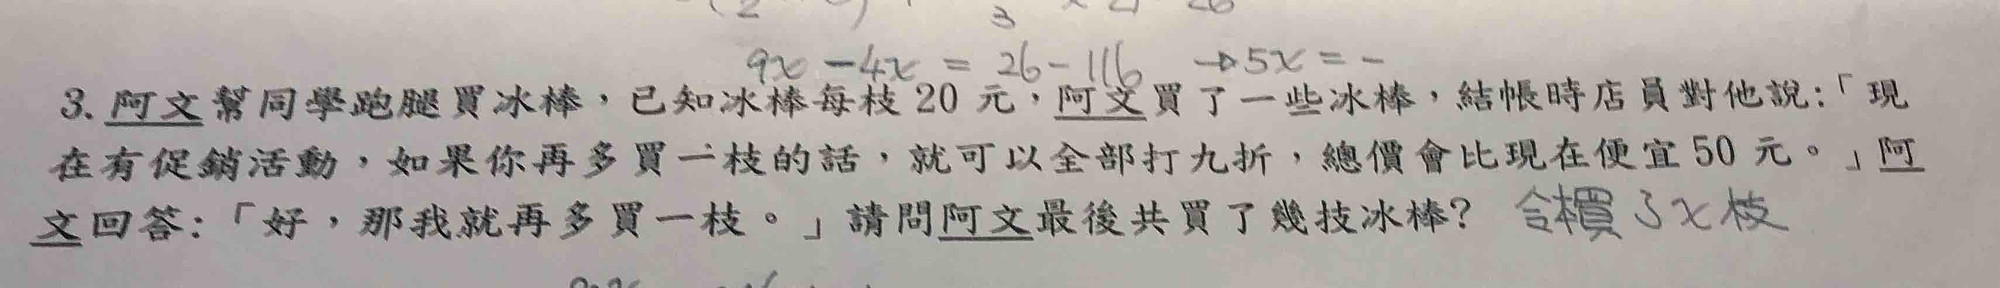 3
9x - 4x = 26 - 116 → 5x = -
3. 阿文幫同學跑腿買冰棒，已知冰棒每枝 20 元，阿文買了一些冰棒，結帳時店員對他說:「現
在有促銷活動，如果你再多買一枝的話，就可以全部打九折，總價會比現在便宜 50 元。」阿
文回答:「好，那我就再多買一枝。」請問阿文最後共買了幾技冰棒? 令買了x枝